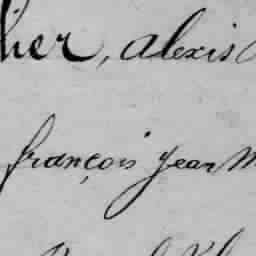 her, alexis
françois jean M